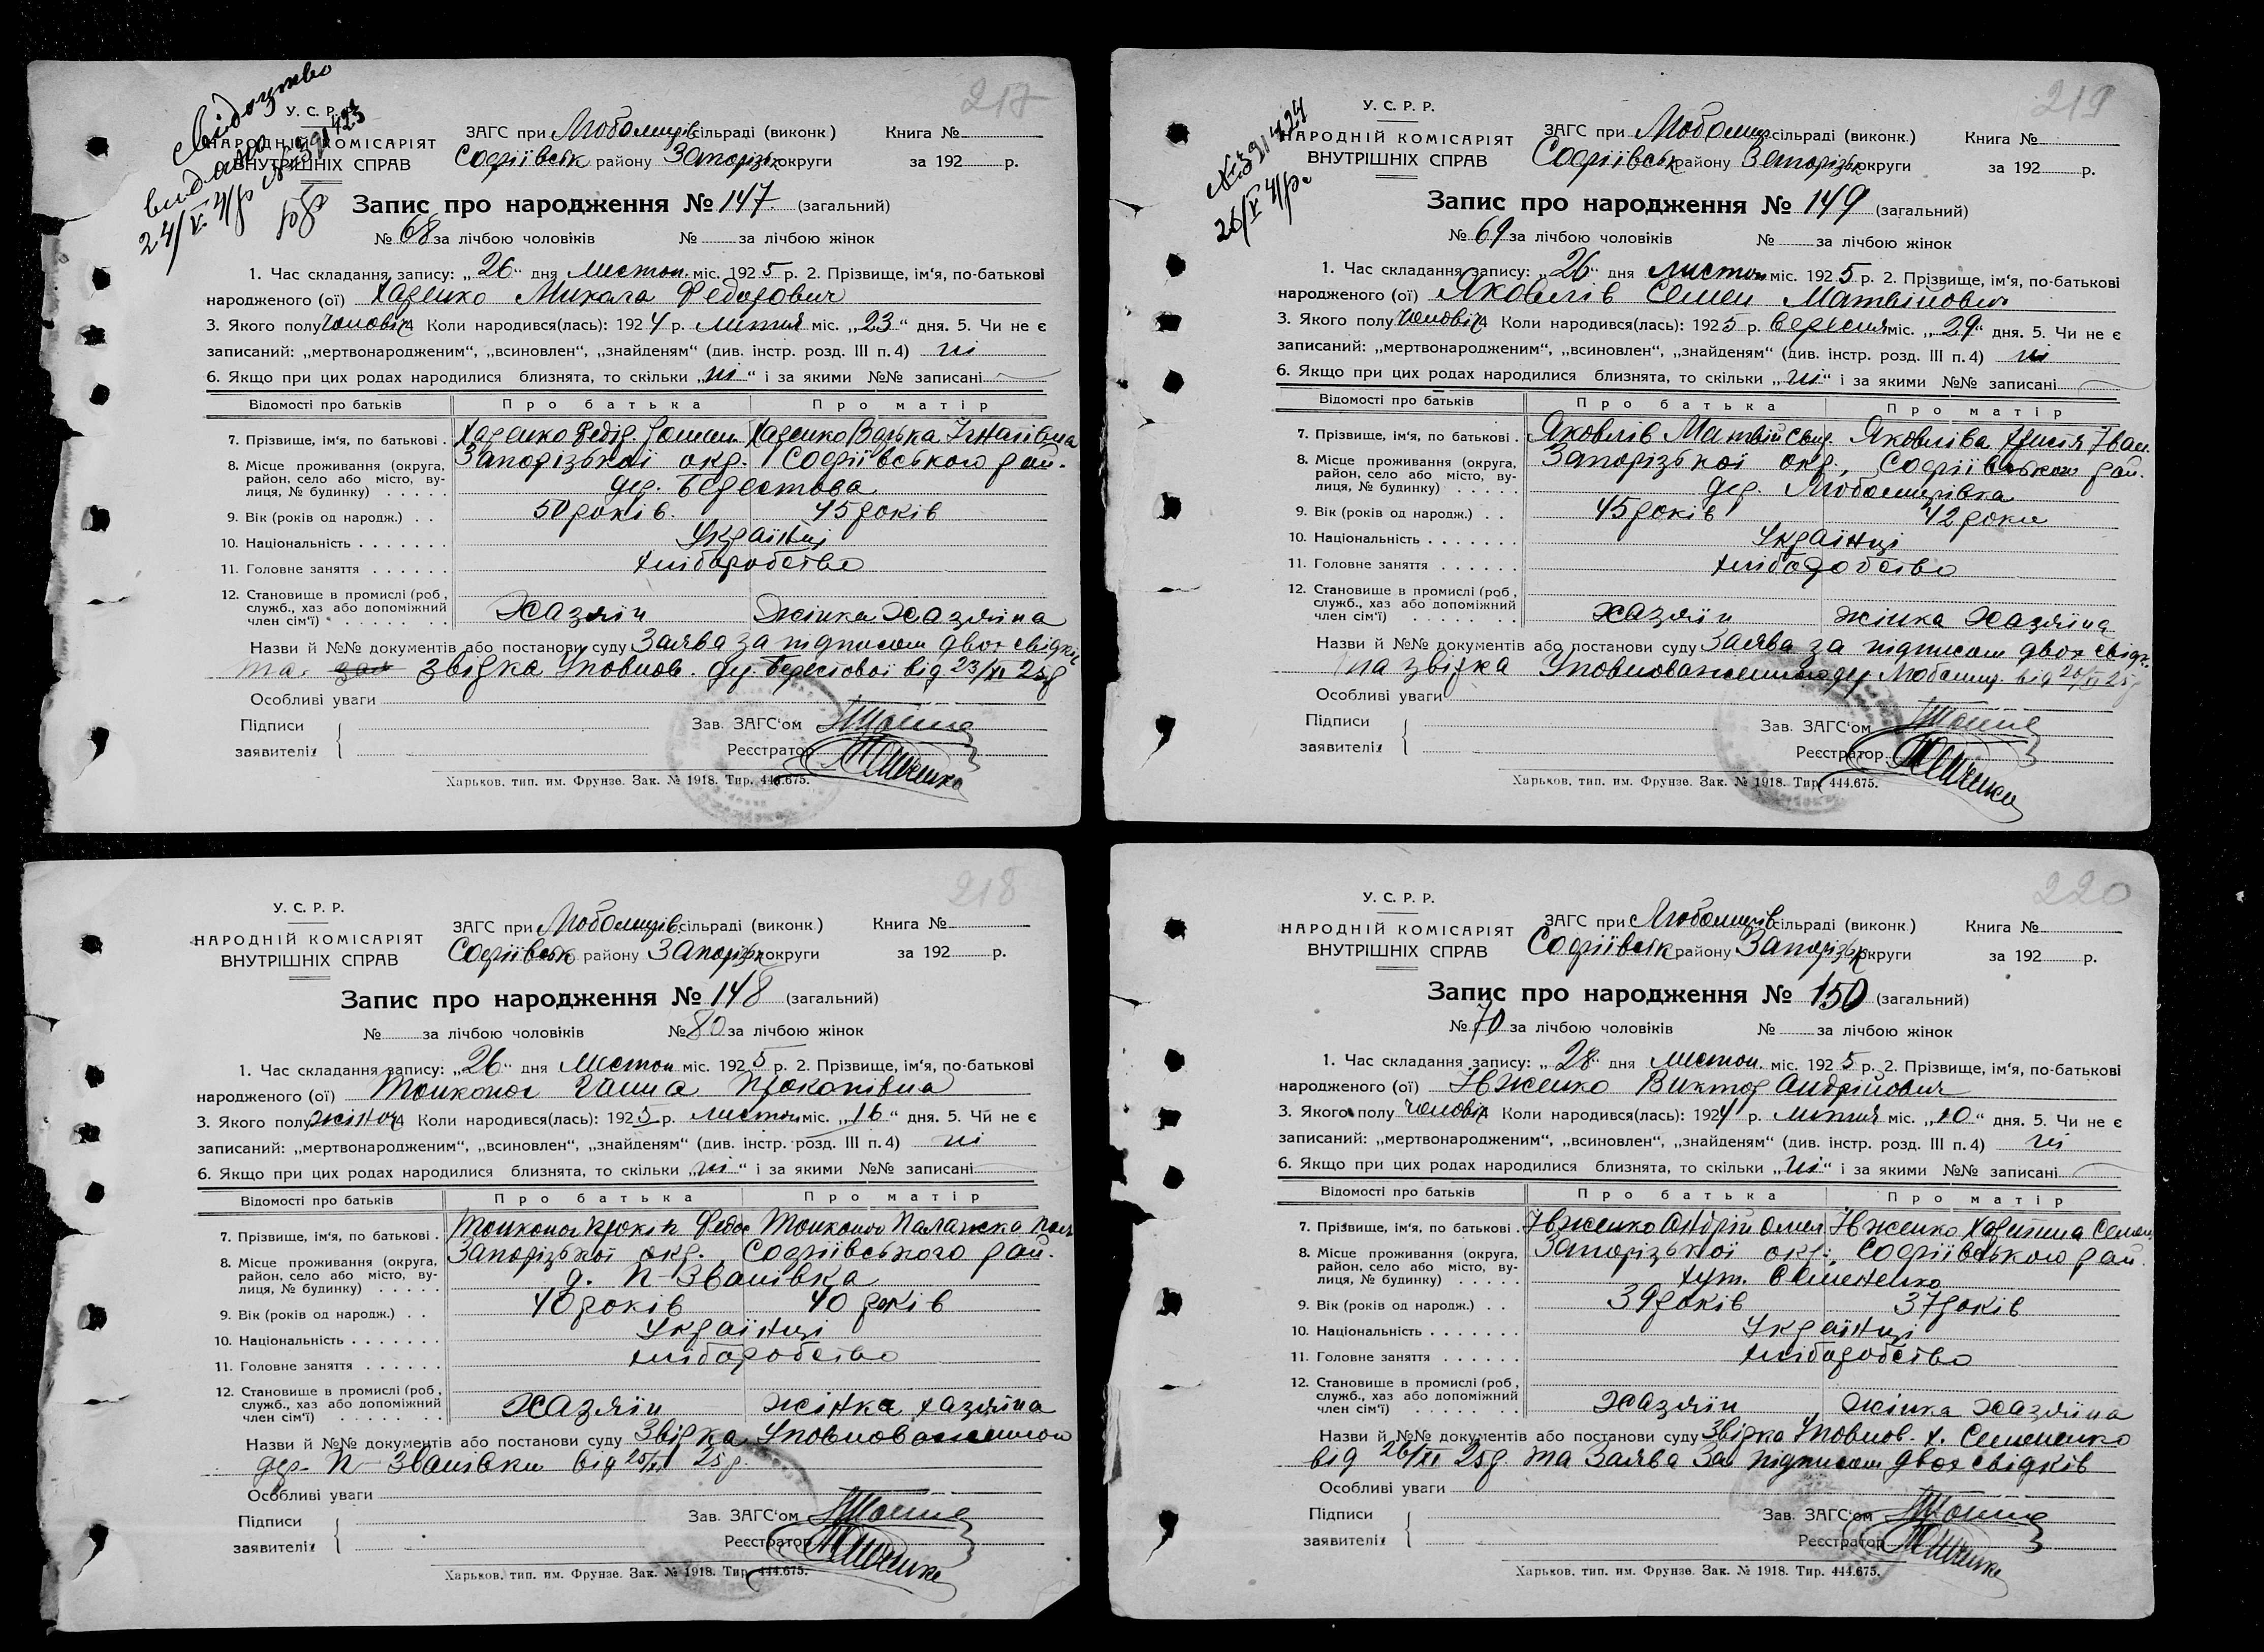 217
Свідоцтво
видано № 391423
24/V. 41р
У. С. Р. Р.
НАРОДНІЙ КОМІСАРІЯТ
ВНУТРІШНІХ СПРАВ
ЗАГС при Любомирів. сільраді (виконк.) Книга №
Софіївськ району Запорізьк округи за 192 р.
Запис про народження № 147. (загальний)
№ 68 за лічбою чоловіків № за лічбою жінок
1. Час складання запису: „26" дня листоп. міс. 1925 р. 2. Прізвище, ім'я, по-батькові
народженого (ої) Харенко Микола Федорович
3. Якого полу чоловіч 4 Коли народився(лась): 1924 р. липня міс. „23" дня. 5. Чи не є
записаний: „мертвонародженим", „всиновлен", „знайденям" (див. інстр. розд. III п. 4) ні
6. Якщо при цих родах народилися близнята, то скільки „ні" і за якими №№ записані
Відомості про батьків Про батька Про матір
7. Прізвище, ім'я, по батькові . Харенко Федір Роман. Харенко Варька Ігнатівна
8. Місце проживання (округа, район, село або місто, вулиця, № будинку) Запорізької окр. Софіївського рай.
дер. Берестова
9. Вік (років од народж.) . . 50 років. 45 років
10. Національність . . . . . . . Українці
11. Головне заняття . . . . . . хліборобство
12. Становище в промислі (роб., служб., хаз або допоміжний член сім'ї) Хазяїн жінка Хазяїна
Назви й №№ документів або постанови суду Заява за підписом двох свідків
та зая звідка Уповнов. дер. Берестової від 23/XI 25р
Особливі уваги
Підписи
заявителів
Зав. ЗАГС'ом
Реєстратор
Харьков. тип. им. Фрунзе. Зак. № 1918. Тир. 444.675.
219
№ 391424
26/V 41р.
У. С. Р. Р.
НАРОДНІЙ КОМІСАРІЯТ
ВНУТРІШНІХ СПРАВ
ЗАГС при Любомир. сільраді (виконк.) Книга №
Софіївськ району Запорізьк округи за 192 р.
Запис про народження № 149 (загальний)
№ 69 за лічбою чоловіків № за лічбою жінок
1. Час складання запису: „26" дня листоп міс. 1925 р. 2. Прізвище, ім'я, по-батькові
народженого (ої) Яковлів Семен Матвійович
3. Якого полу чоловіч 4 Коли народився(лась): 1925 р. вересня міс. „29" дня. 5. Чи не є
записаний: „мертвонародженим", „всиновлен", „знайденям" (див. інстр. розд. III п. 4) ні
6. Якщо при цих родах народилися близнята, то скільки „ні" і за якими №№ записані
Відомості про батьків Про батька Про матір
7. Прізвище, ім'я, по батькові . Яковлів Матвій Яковліва Іван.
8. Місце проживання (округа, район, село або місто, вулиця, № будинку) Запорізької окр., Софіївського рай.
дер. Любомирівка
9. Вік (років од народж.) . . 45 років 42 роки
10. Національність . . . . . . . Українці
11. Головне заняття . . . . . . хліборобство
12. Становище в промислі (роб., служб., хаз або допоміжний член сім'ї) хазяїн жінка Хазяїна
Назви й №№ документів або постанови суду Заява за підписом двох свідк.
та звідка Уповноваженного дер Любомир. від 20/XI 25р
Особливі уваги
Підписи
заявителів
Зав. ЗАГС'ом
Реєстратор
Харьков. тип. им. Фрунзе. Зак. № 1918. Тир. 444.675.
218
У. С. Р. Р.
НАРОДНІЙ КОМІСАРІЯТ
ВНУТРІШНІХ СПРАВ
ЗАГС при Любомирів. сільраді (виконк.) Книга №
Софіївськ району Запорізьк округи за 192 р.
Запис про народження № 148 (загальний)
№ за лічбою чоловіків № 80 за лічбою жінок
1. Час складання запису: „26" дня листоп міс. 1925 р. 2. Прізвище, ім'я, по-батькові
народженого (ої) Тонконог Ганна Прокопівна
3. Якого полу жіноч 4 Коли народився(лась): 1925 р. листоп міс. „16" дня. 5. Чи не є
записаний: „мертвонародженим", „всиновлен", „знайденям" (див. інстр. розд. III п. 4) ні
6. Якщо при цих родах народилися близнята, то скільки „ні" і за якими №№ записані
Відомості про батьків Про батька Про матір
7. Прізвище, ім'я, по батькові . Тонконог Прокіп Федос Тонконог Палажка
8. Місце проживання (округа, район, село або місто, вулиця, № будинку) Запорізької окр., Софіївського рай.
д. П-Званівка
9. Вік (років од народж.) . . 40 років 40 років
10. Національність . . . . . . . Українці
11. Головне заняття . . . . . . хліборобство
12. Становище в промислі (роб., служб., хаз або допоміжний член сім'ї) Хазяїн жінка хазяїна
Назви й №№ документів або постанови суду Звідка Уповноваженного
дер. П-Званівки від 25/XI 25р.
Особливі уваги
Підписи
заявителів
Зав. ЗАГС'ом
Реєстратор
Харьков. тип. им. Фрунзе. Зак. № 1918. Тир. 444.675.
220
У. С. Р. Р.
НАРОДНІЙ КОМІСАРІЯТ
ВНУТРІШНІХ СПРАВ
ЗАГС при Любомирів сільраді (виконк.) Книга №
Софіївськ району Запорізьк округи за 192 р.
Запис про народження № 150 (загальний)
№ 70 за лічбою чоловіків № за лічбою жінок
1. Час складання запису: „28" дня листоп. міс. 1925 р. 2. Прізвище, ім'я, по-батькові
народженого (ої) Івженко Виктор Андрійович
3. Якого полу чоловіч Коли народився(лась): 1924 р. липня міс. „10" дня. 5. Чи не є
записаний: „мертвонародженим", „всиновлен", „знайденям" (див. інстр. розд. III п. 4) ні
6. Якщо при цих родах народилися близнята, то скільки „ні" і за якими №№ записані
Відомості про батьків Про батька Про матір
7. Прізвище, ім'я, по батькові . Івженко Андрій Омел Івженко Харитина Семен.
8. Місце проживання (округа, район, село або місто, вулиця, № будинку) Запорізької окр., Софіївського рай.
хут. Семененко
9. Вік (років од народж.) . . 39 років 37 років
10. Національність . . . . . . . Українці
11. Головне заняття . . . . . . хліборобство
12. Становище в промислі (роб., служб., хаз або допоміжний член сім'ї) Хазяїн жінка Хазяїна
Назви й №№ документів або постанови суду Звідка Уповнов. х. Семененко
від 26/XI 25р та Заява За підписом двох свідків
Особливі уваги
Підписи
заявителів
Зав. ЗАГС'ом
Реєстратор
Харьков. тип. им. Фрунзе. Зак. № 1918. Тир. 444.675.